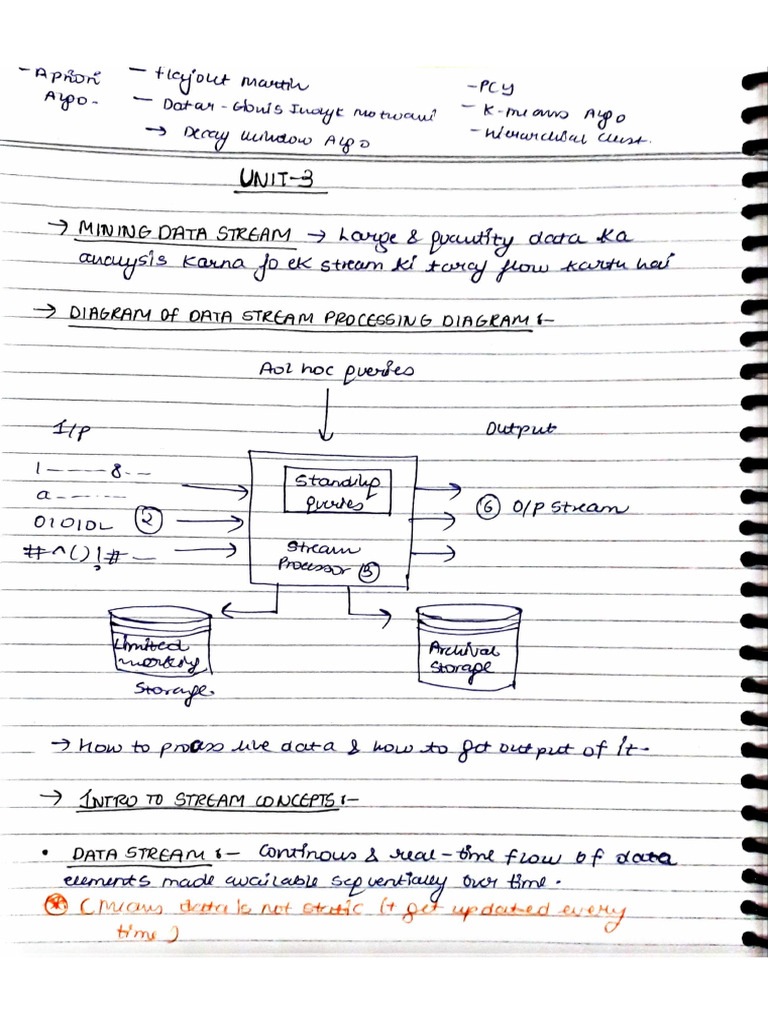 - Apriori - Flajolet Martin - PCY
Algo. - Datar-Gionis Indyk Motwani - K-means Algo
→ Decay window Algo - Hierarchial Clust.
UNIT-3
→ MINING DATA STREAM → Large & quantity data ka
analysis karna jo ek stream ki taray flow kartu hai
→ DIAGRAM OF DATA STREAM PROCESSING DIAGRAM :-
Ad hoc queries
I/P Output
1-----8--
a------
01010L ②
#^()!#-
Standing
queries
Stream
Processor ③
⑥ O/P Stream
Limited
working
Storage.
Archival
Storage
→ How to process live data & how to get output of it.
→ INTRO TO STREAM CONCEPTS :-
• DATA STREAM :- Continous & real-time flow of data
elements made available sequentially over time.
⊛ (Means data is not static it get updated every
time)